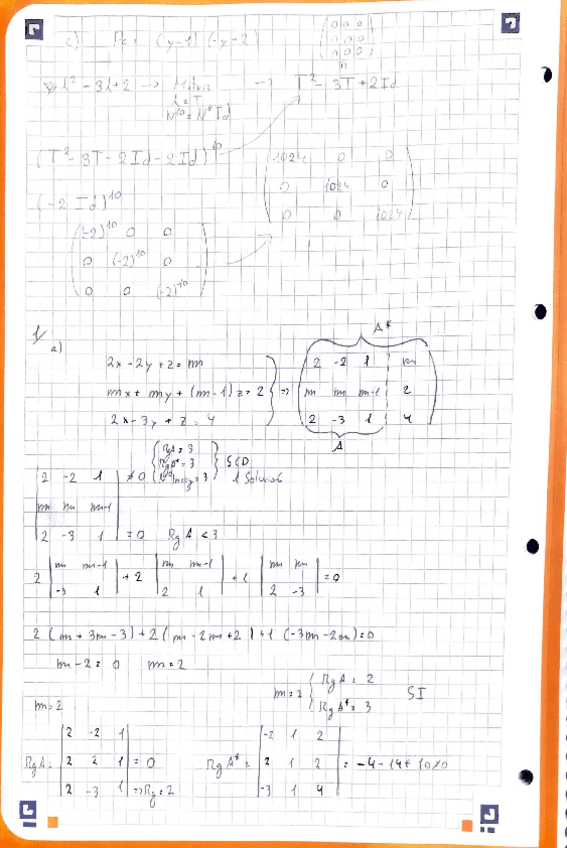 c) Pc = (y-1)(-y-2)
(0 0 0
0 0 0
0 0 0)
λ² - 3λ+2 → Matriz → T² - 3T + 2Id
λ = T
Nº = Nº Id
(T² - 3T - 2Id - 2Id)¹⁰
(1024 0 0
0 1024 0
0 0 1024)
(-2 Id)¹⁰
((-2)¹⁰ 0 0
0 (-2)¹⁰ 0
0 0 (-2)¹⁰)
1/
a)
A*
2x - 2y + z = m
mx + my + (m-1)z = 2 } ⇒
2x - 3y + z = 4
(2 -2 1 m
m m m-1 2
2 -3 1 4)
A
|2 -2 1
m m m-1
2 -3 1|
≠0 { RgA = 3
RgA* = 3
Nº Incog = 3 } SCD
1 Solución
= 0 RgA < 3
2 |m m-1
-3 1| + 2 |m m-1
2 1| + 1 |m m
2 -3| = 0
2 (m + 3m - 3) + 2 (m - 2m + 2) + 1 (-3m - 2m) = 0
m - 2 = 0 m = 2
m = 2 { RgA = 2
RgA* = 3 SI
m = 2
RgA = |2 -2 1
2 2 1
2 -3 1| = 0
⇒ Rg = 2
RgA* = |-2 1 2
2 1 2
-3 1 4| = -4 - 14 + 10 ≠ 0